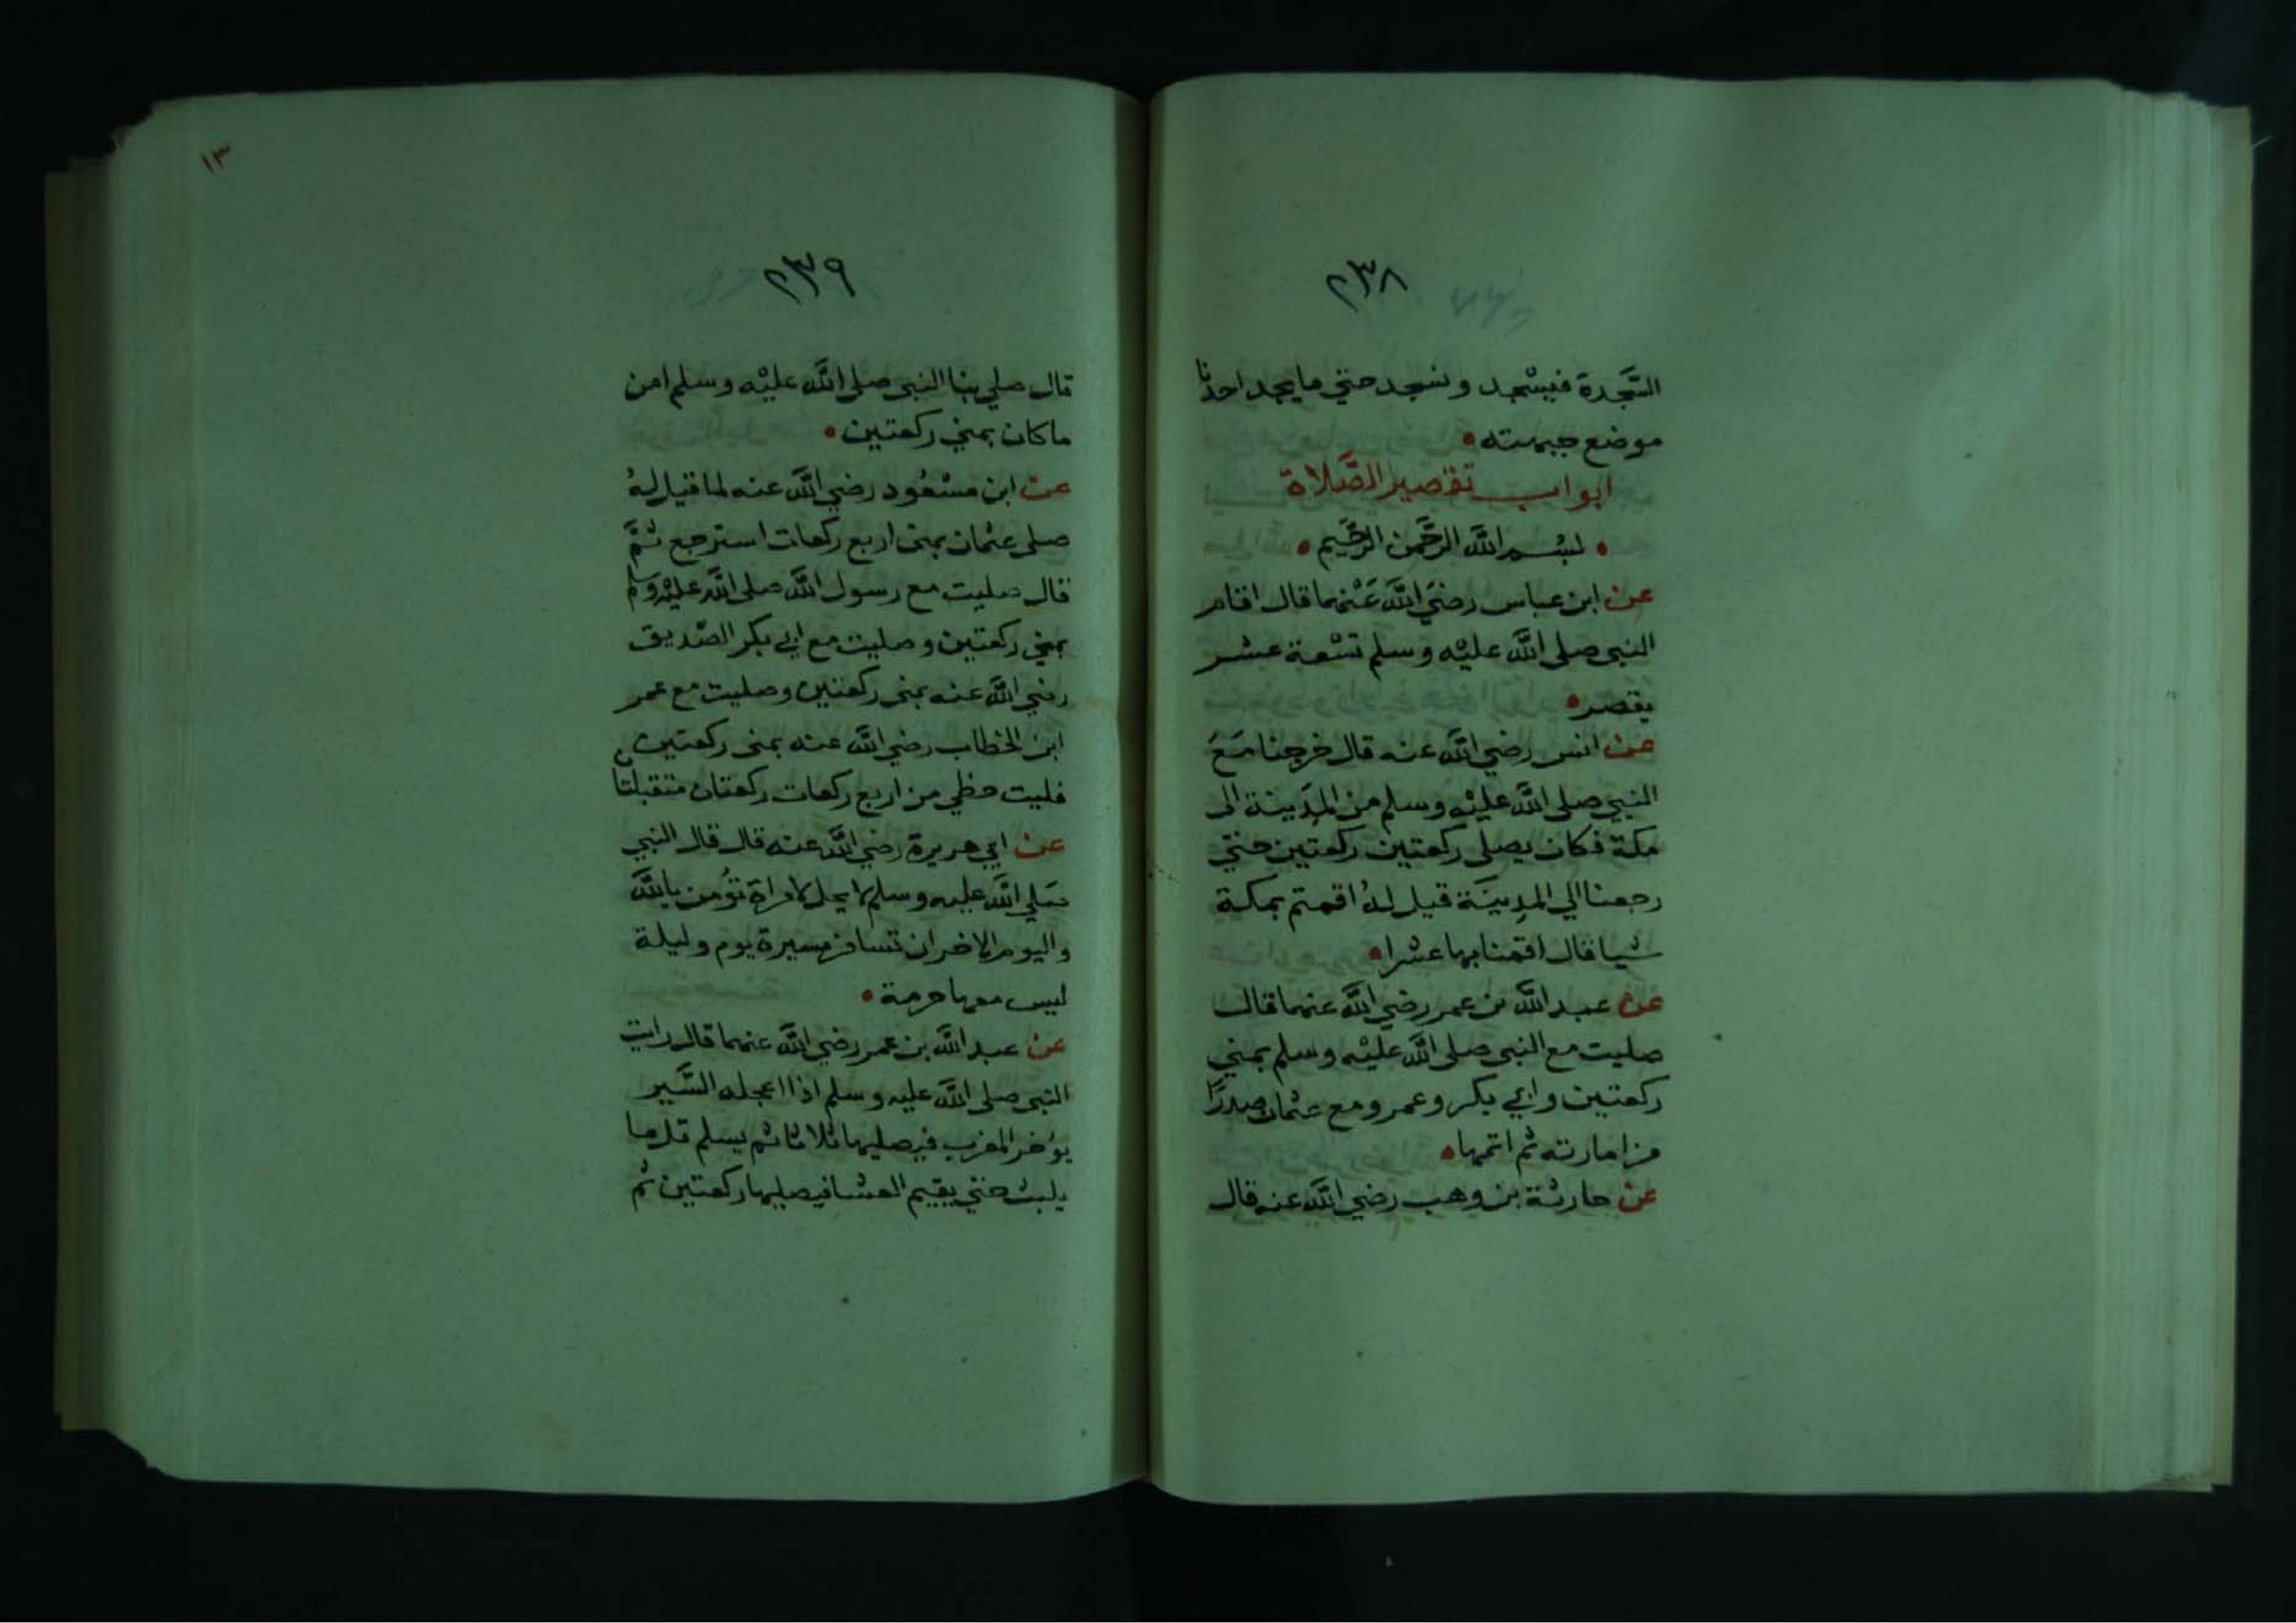 ٢٣٨
السَّجدة فيسْجد ونسجد حتي ما يجد احدنا
موضع جبهته
ابواب تقصير الصَّلاة
بسْم اللَّه الرَّحمن الرَّحيم
عن ابن عباس رضيَ اللَّه عَنْهما قال اقام
النبي صلى اللَّه عليْه وسلم تسْعة عشر
يقصر
عن انس رضي اللَّه عنه قال خرجنا مَعَ
النبي صلى اللَّه عليْه وسلم من المدَينة الى
مكة فكان يصلي ركعتين ركعتين حتي
رجعنا الي المدِينَة قيل لهُ اقمتم بمكة
شيا قال اقمنا بها عشرا
عن عبد اللَّه بن عمر رضي اللَّه عنهما قال
صليت مع النبي صلى اللَّه عليْه وسلم بمني
ركعتين وابي بكر وعمر ومع عثمان صدرًا
من امارته ثم اتمها
عن حارثة بن وهب رضي اللَّه عنه قال
١٣
٢٣٩
قال صلي بنا النبي صلى اللَّه عليْه وسلم امن
ما كان بمني ركعتين
عن ابن مسْعُود رضي اللَّه عنه لما قيل لهُ
صلى عثمان بمنى اربع ركعات استرجع ثمَّ
قال صليت مع رسول اللَّه صلى اللَّه عليْه وسلم
بمني ركعتين وصليت مع ابي بكر الصّديق
رضي اللَّه عنه بمنى ركعتين وصليت مع عمر
ابن الخطاب رضي اللَّه عنه بمنى ركعتين
فليت حظي من اربع ركعات ركعتان متقبلتا
عن ابي هريرة رضي اللَّه عنه قال قال النبي
صَلي اللَّه عليه وسلم لا يحل لامراة تؤمن باللَّه
واليوم الاخر ان تسافر مسيرة يوم وليلة
ليس معها حرمة
عن عبد اللَّه بن عمر رضي اللَّه عنهما قال رايت
النبي صلى اللَّه عليه وسلم اذا اعجله السَّير
يؤخر المغرب فيصليها ثلاثا ثم يسلم قل ما
يلبث حتي يقيم العشا فيصليها ركعتين ثم